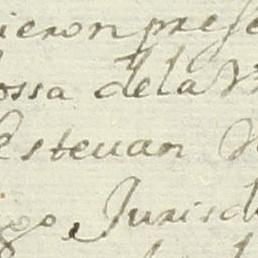 ieron prese
ossa dela V
Esteuan
igo, Jurisd